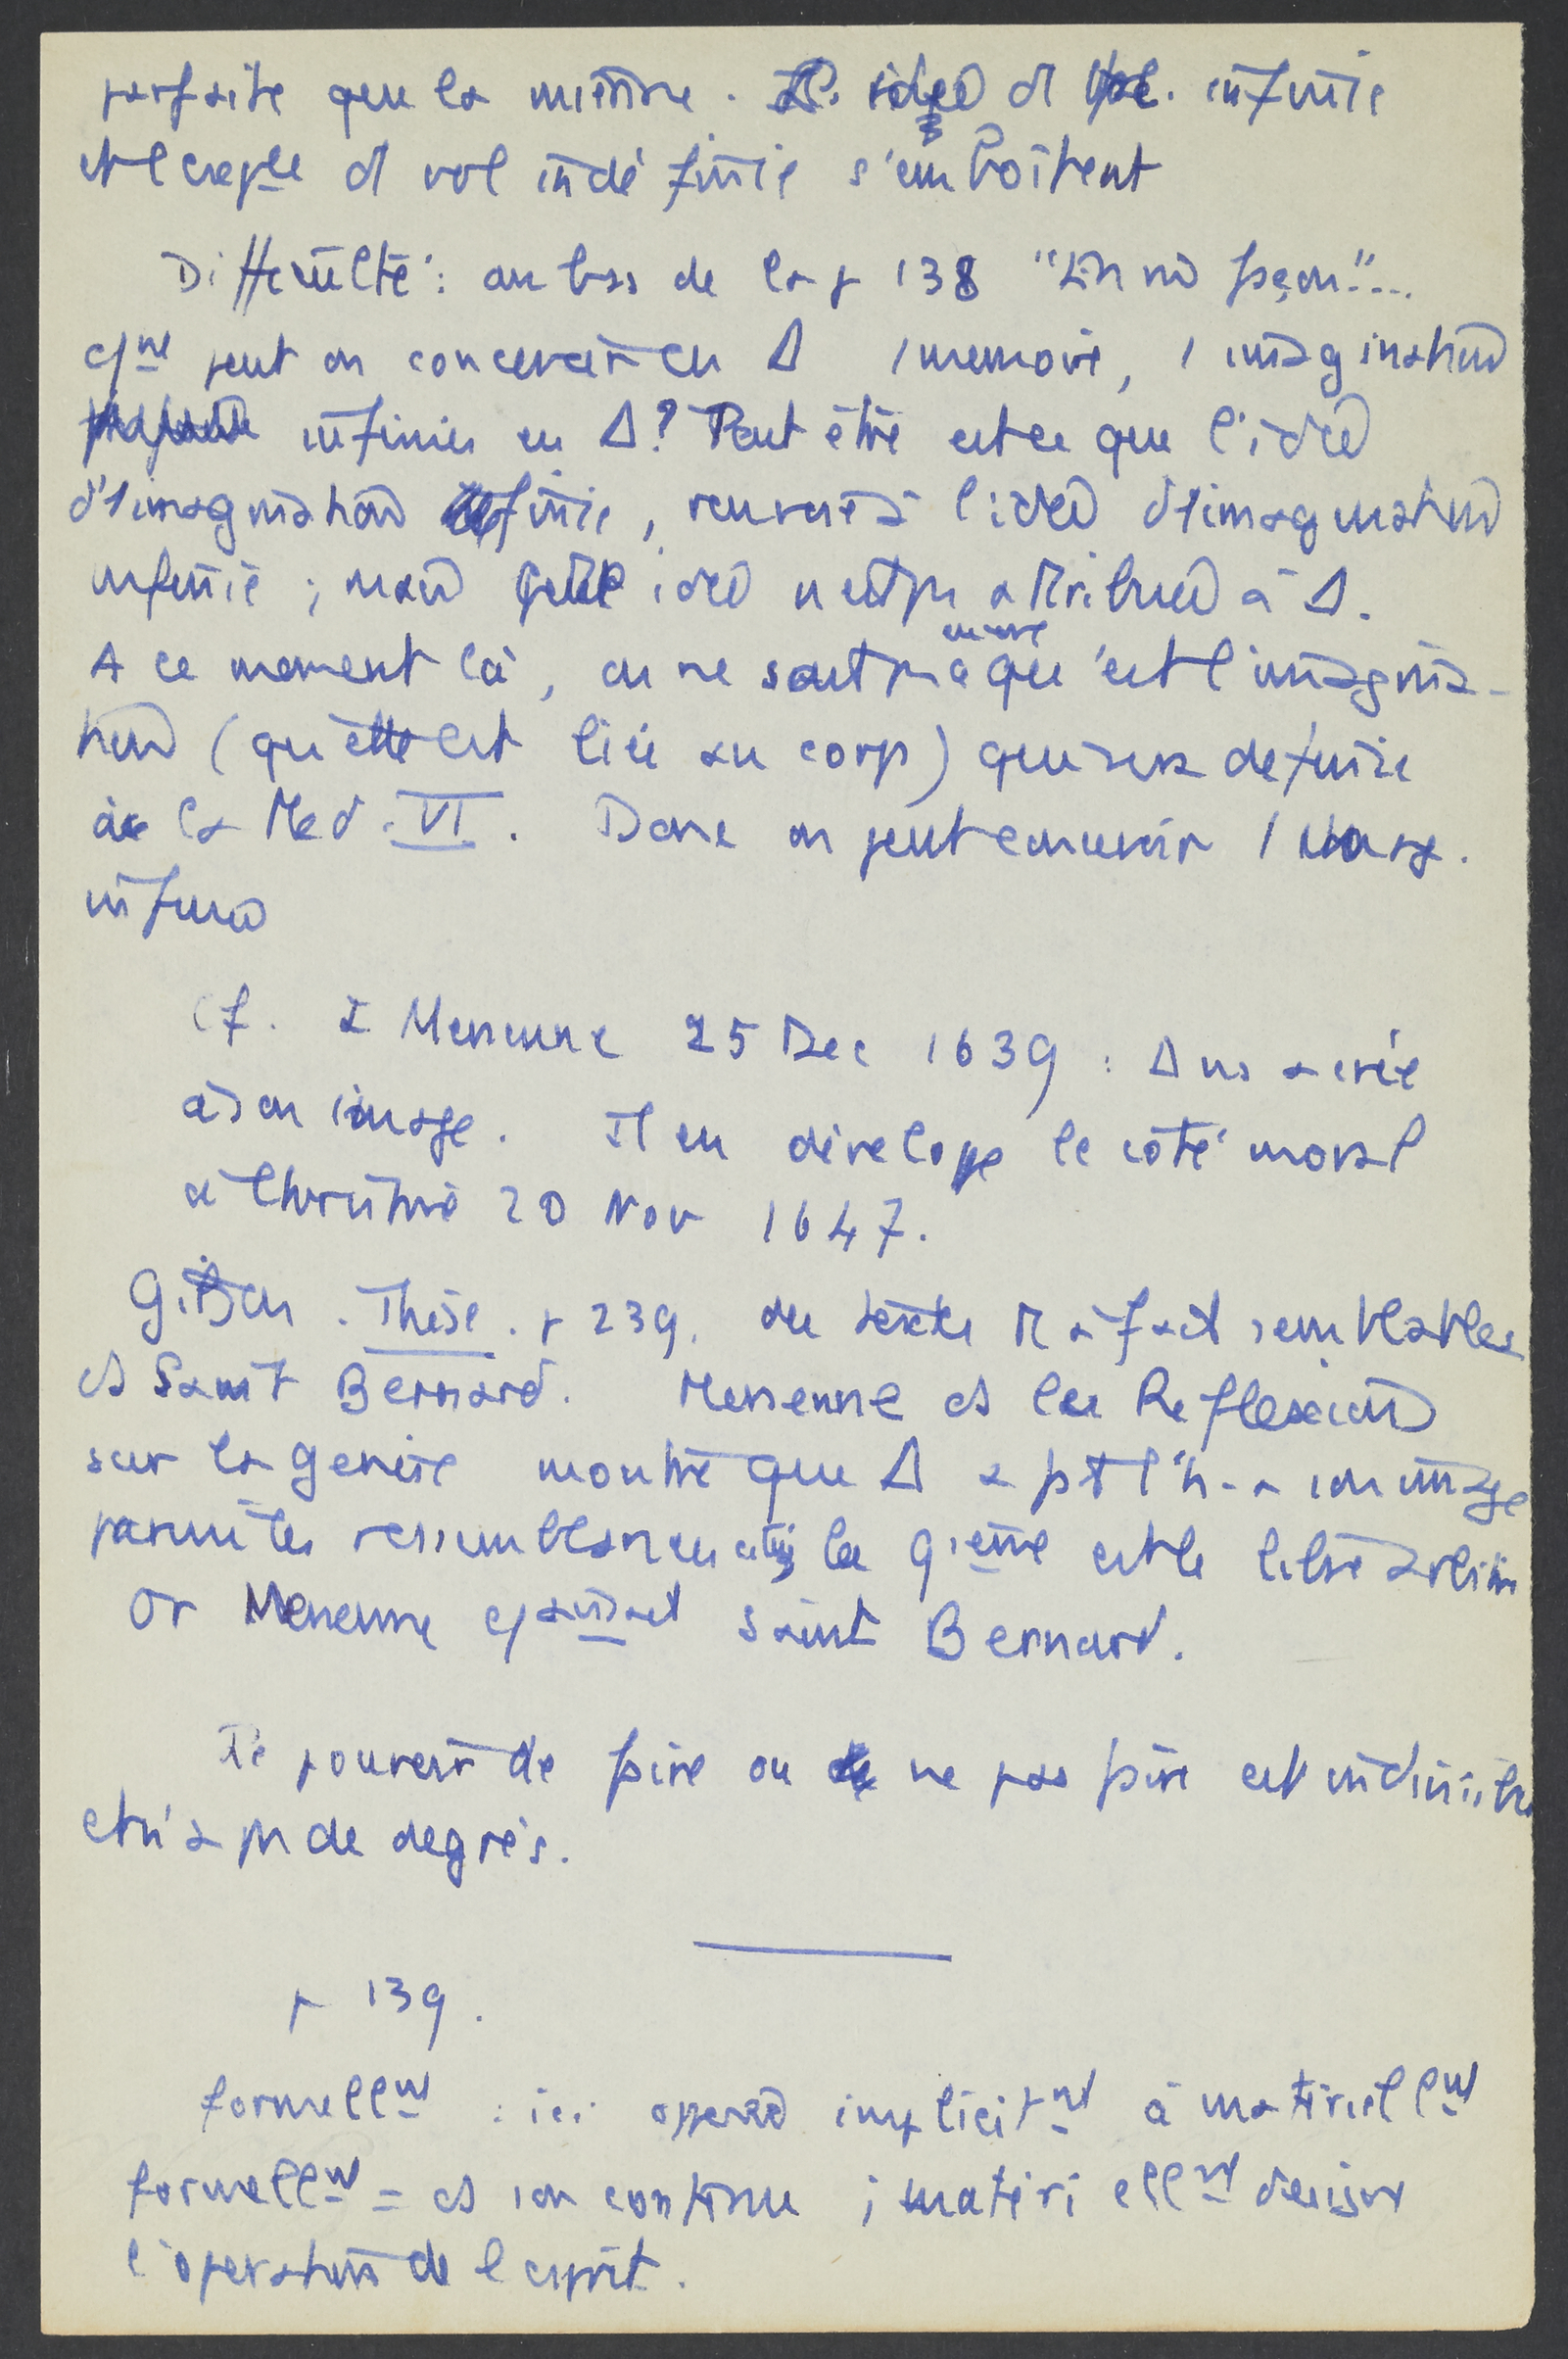 parfaite que la mienne. L'idée d vol. infinie
et l'exple d vol indéfinie s'emboîtent
Difficulté : au bas de la p 138 "En nd façon"...
cmt peut on concevoir en Δ 1 memoire, 1 imagination
infinies en Δ? Peut être est ce que l'idée
d'1 imagination finie, renvoie à l'idée d'1 imagination
infinie ; mais cette idée n'est pas attribuée à Δ.
A ce moment là, on ne sait pas encore ce qu'est l'imagina-
tion (qu'elle est liée au corps) qui sera definie
ds la Med. VI. Donc on peut concevoir 1 imag.
infinie
Cf. à Mersenne 25 Dec 1639 : Δ ns a créé
à son image. Il en développe le côté moral
à Christine 20 Nov 1647.
Gilson. Thèse. p 239. des textes tt à fait semblables
ds Saint Bernard. Mersenne ds les Reflexions
sur la genèse montre que Δ a ft l'h. à son image
parmi les ressemblances citées la 9ième est le libre arbitre
Or Mersenne cnaissait Saint Bernard.
Le pouvoir de faire ou de ne pas faire est indivisible
et n'a pas de degrés.
p 139.
formellmt : ici opposé implicitmt à matériellmt
formellmt = ds son contenu ; matériellmt désigne
l'operation de l'esprit.